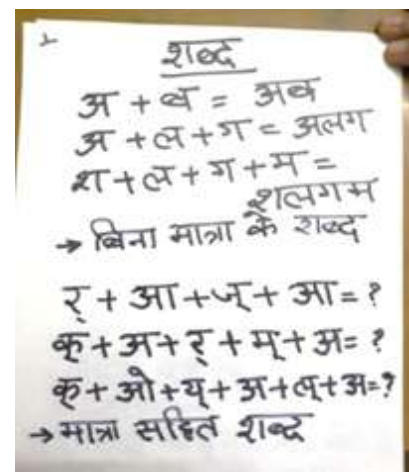 शब्द
अ + ब = अब
अ + ल + ग = अलग
श + ल + ग + म =
शलगम
→ बिना मात्रा के शब्द
र् + आ + ज् + आ = ?
क् + अ + र् + म् + अ = ?
क् + ओ + य् + अ + ल् + अ = ?
→ मात्रा सहित शब्द